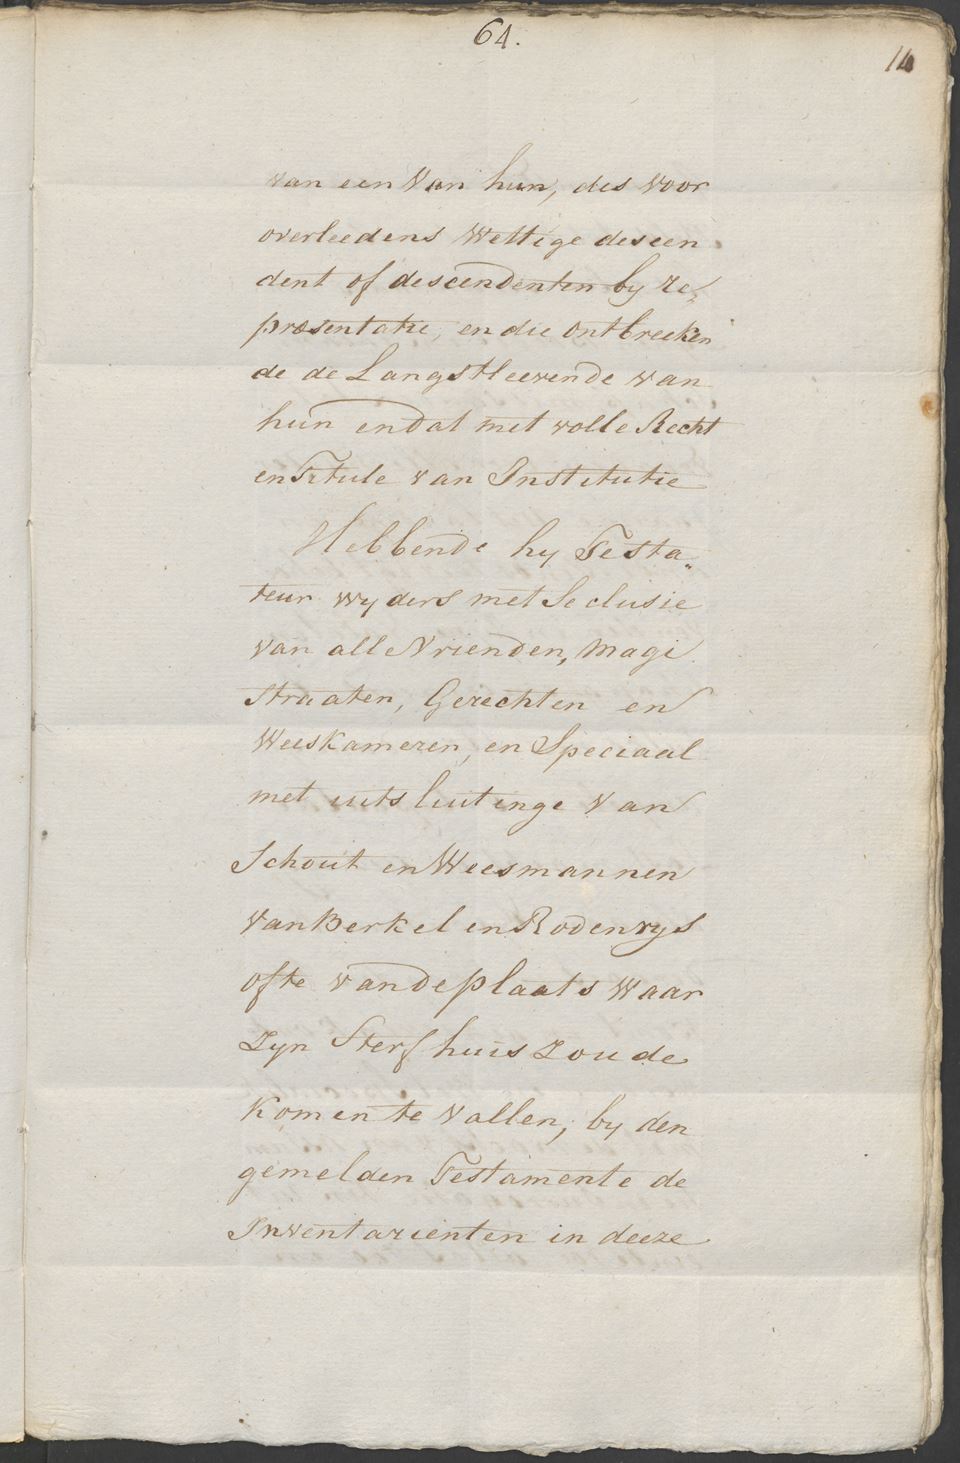 64.
14
van een Van hun, des voor
overleedens Wettige descen
dent of descendenten by re„
præsentatie, en die ontbreeken
de de Langstleevende van
hun en dat met volle Recht
en Titule van Institutie
Hebbende hy Testa„
teur wyders met Seclusie
van alle Vrienden, Magi
straaten, Gerechten en
Weeskameren, en Speciaal
met uitsluitinge van
Schout en Weesmannen
van Berkel en Rodenrys
ofte van de plaats Waar
Zyn Sterfhuis Zoude
Komen te Vallen, by den
gemelden Testamente de
Inventarienten in deeze